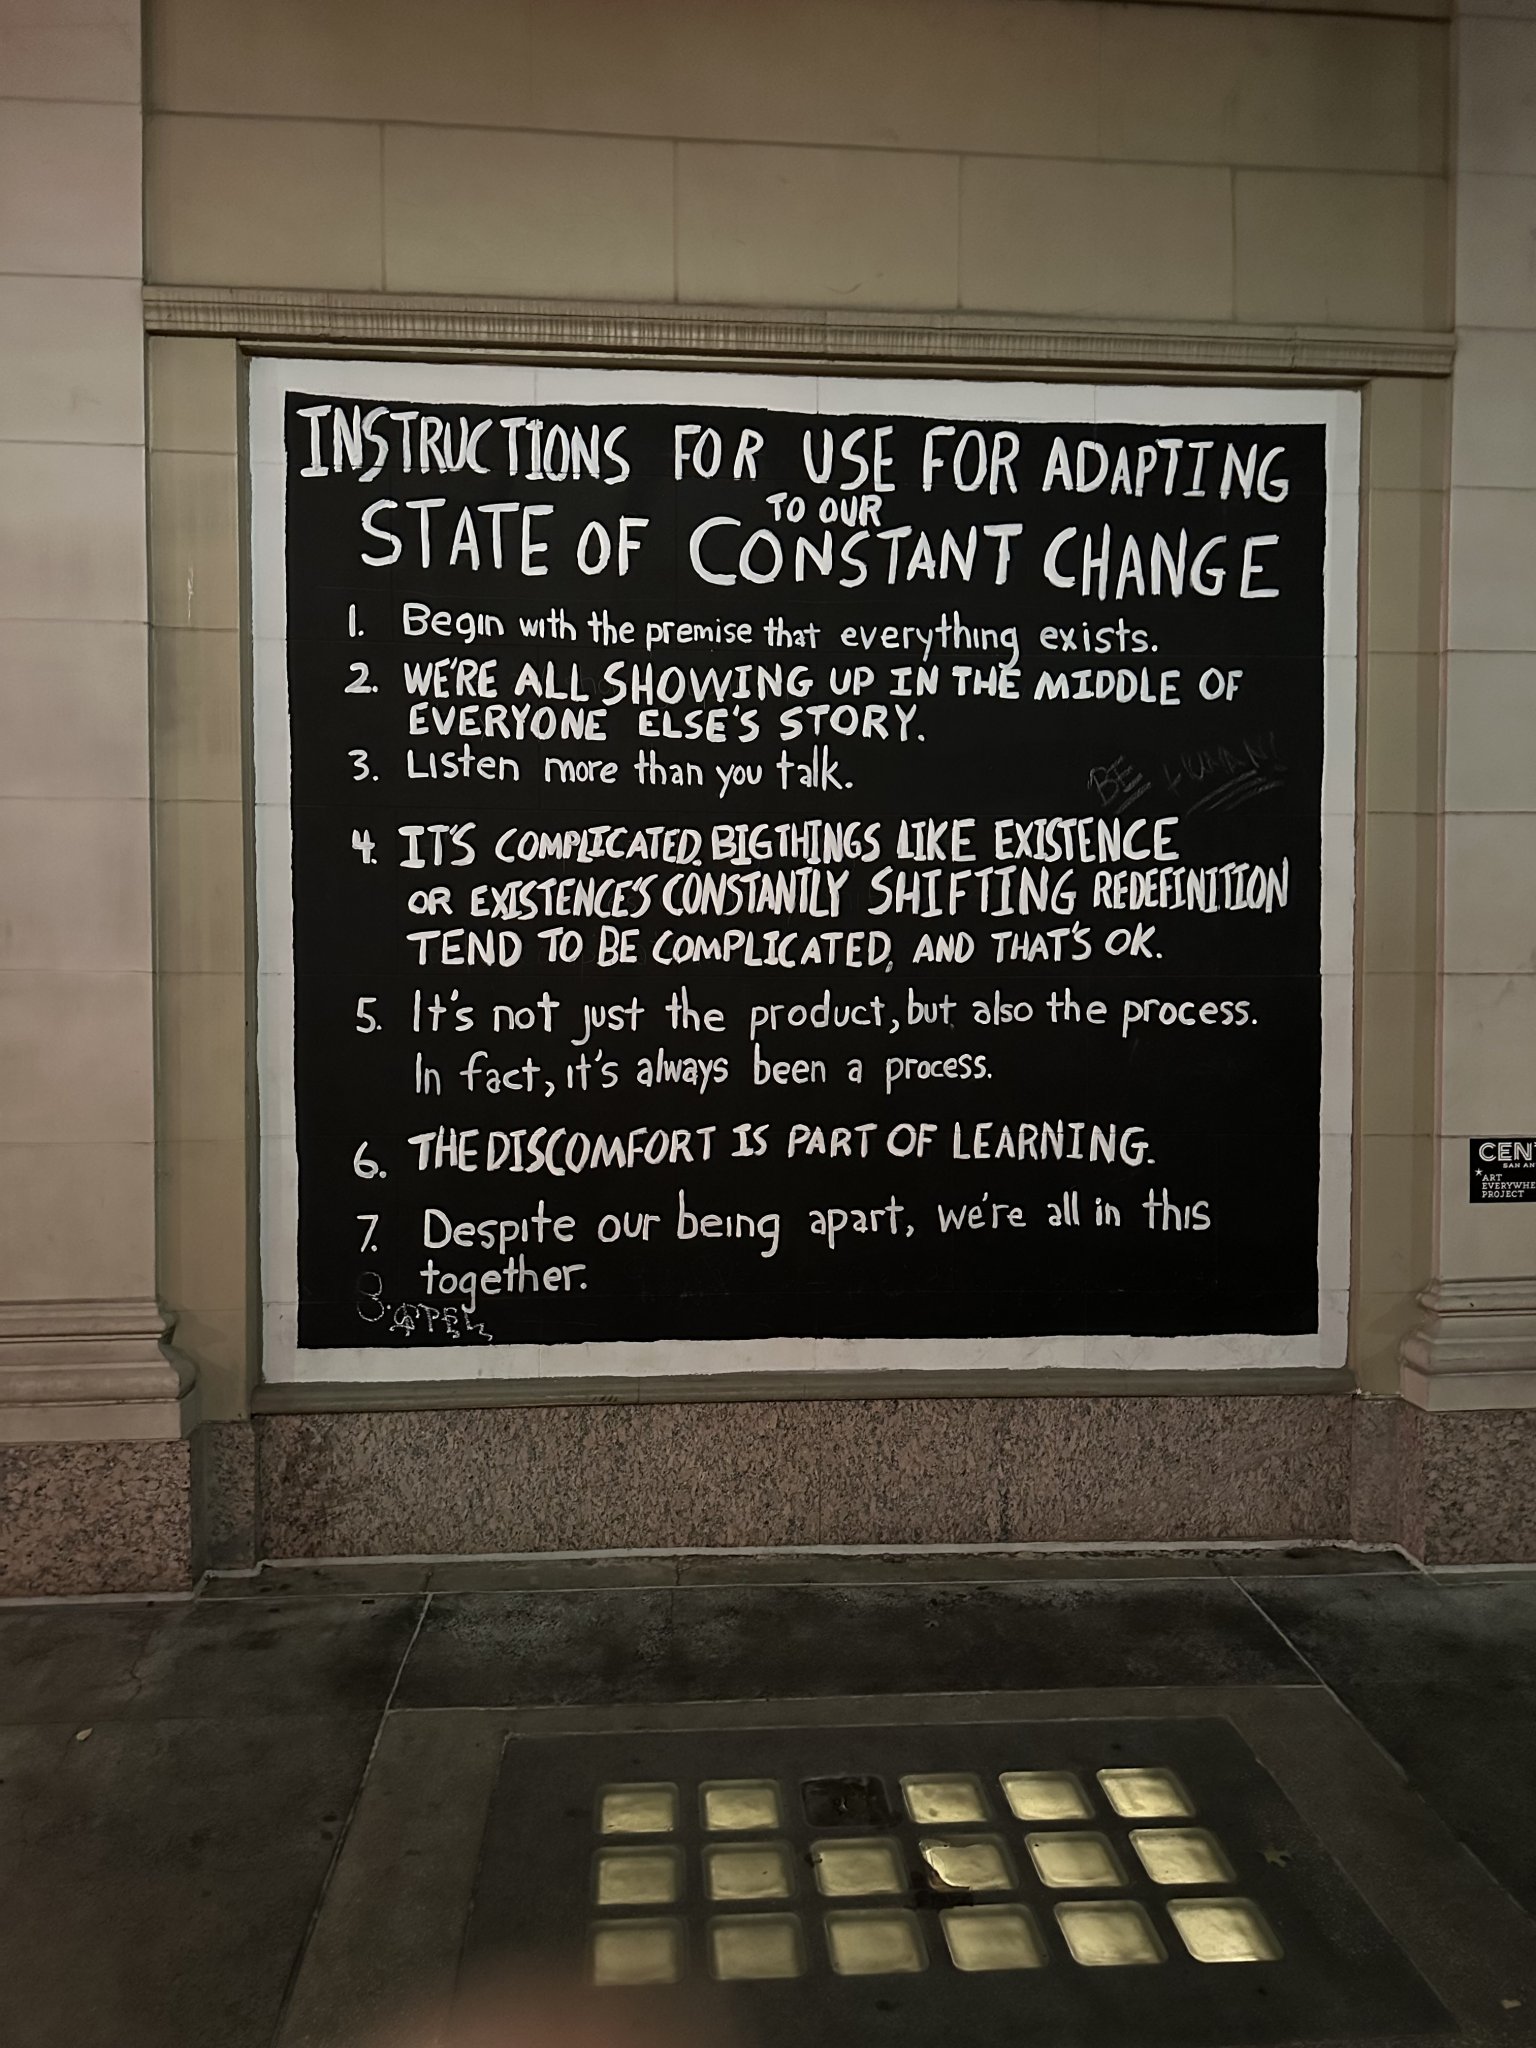 INSTRUCTIONS FOR USE FOR ADAPTING
TO OUR
STATE OF CONSTANT CHANGE
1. Begin with the premise that everything exists.
2. WE'RE ALL SHOWING UP IN THE MIDDLE OF
EVERYONE ELSE'S STORY.
3. Listen more than you talk.
BE HUMAN!
4. IT'S COMPLICATED. BIG THINGS LIKE EXISTENCE
OR EXISTENCE'S CONSTANTLY SHIFTING REDEFINITION
TEND TO BE COMPLICATED, AND THAT'S OK.
5. It's not just the product, but also the process.
In fact, it's always been a process.
6. THE DISCOMFORT IS PART OF LEARNING.
7. Despite our being apart, we're all in this
together.
8.
CEN
SAN AN
ART
EVERYWHE
PROJECT